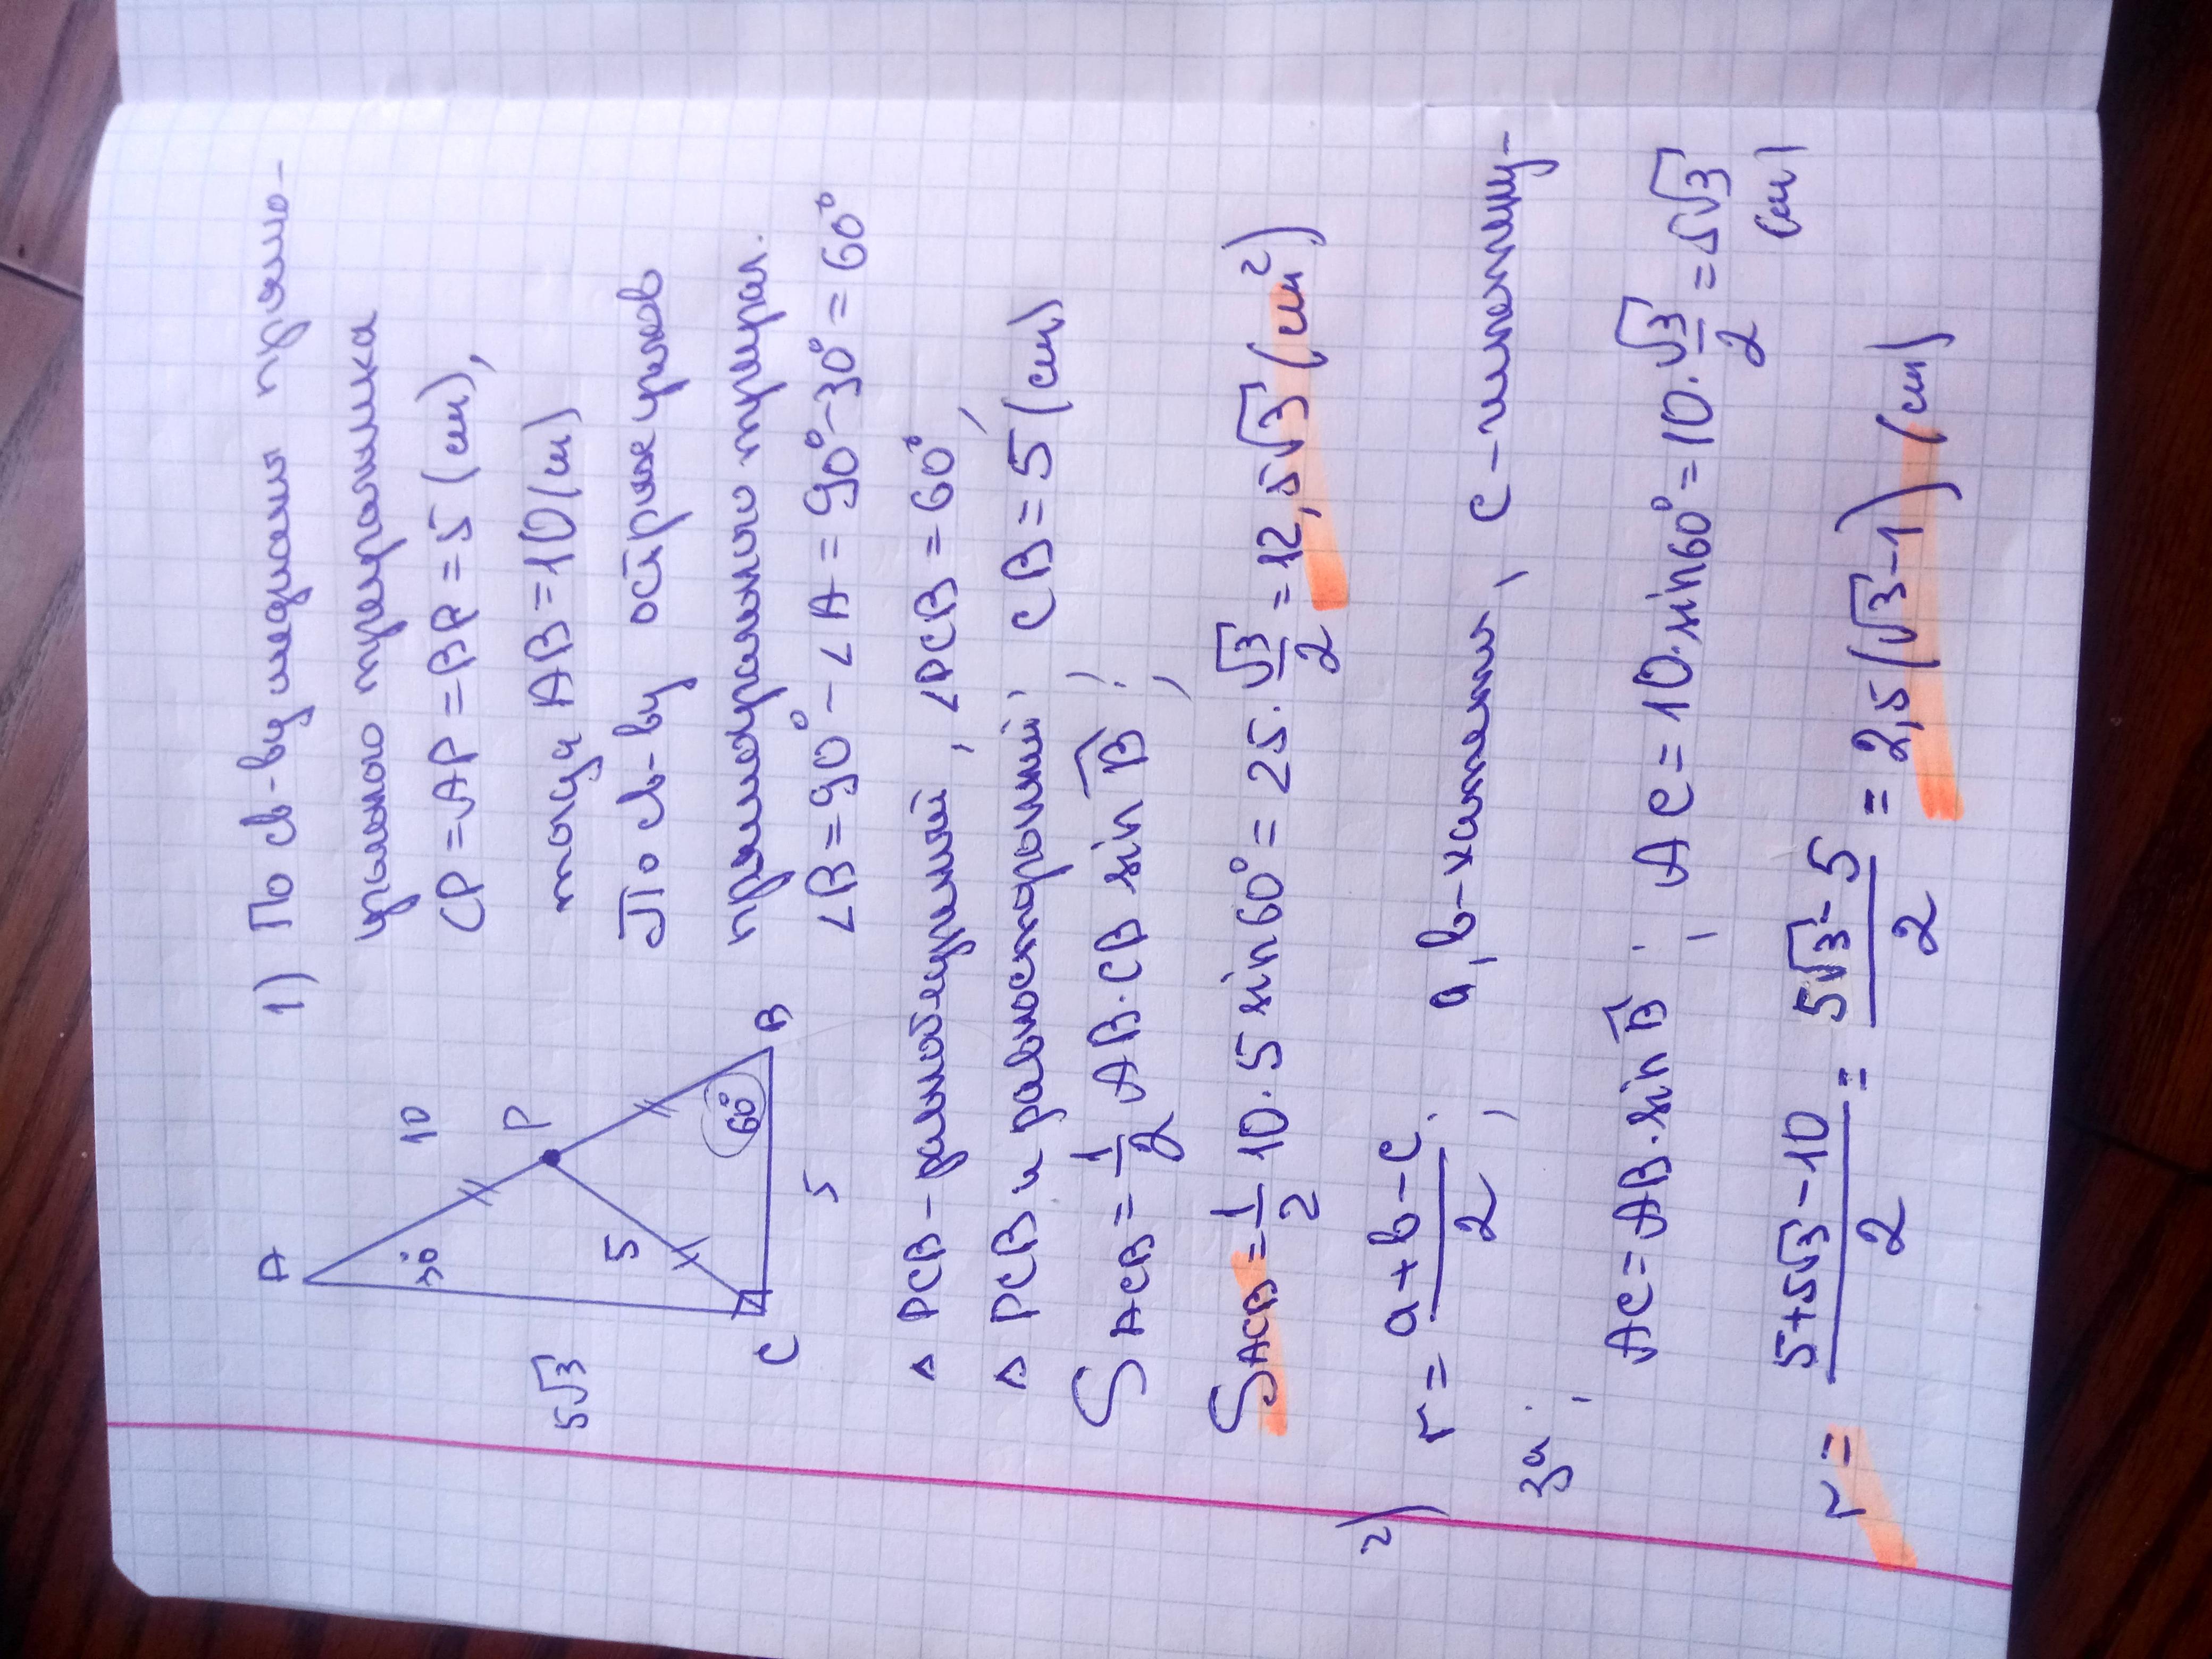 A
30°
10
P
5√3
5
60°
C
5
B
1) По св-ву медианы прямо-
угольного треугольника
CP = AP = BP = 5 (см),
тогда AB = 10 (см)
По св-ву острых углов
прямоугольного треугол.
∠B = 90° - ∠A = 90° - 30° = 60°
△ PCB - равнобедренный, ∠PCB = 60°,
△ PCB и равносторонний; CB = 5 (см)
S ACB = 1/2 AB · CB sin B;
S ACB = 1/2 10 · 5 sin 60° = 25 · √3/2 = 12,5√3 (см²)
2) r = (a + b - c)/2; a, b - катеты, c - гипотену-
за; AC = AB · sin B; AC = 10 · sin 60° = 10 · √3/2 = 5√3 (см)
r = (5 + 5√3 - 10)/2 = (5√3 - 5)/2 = 2,5(√3 - 1) (см)